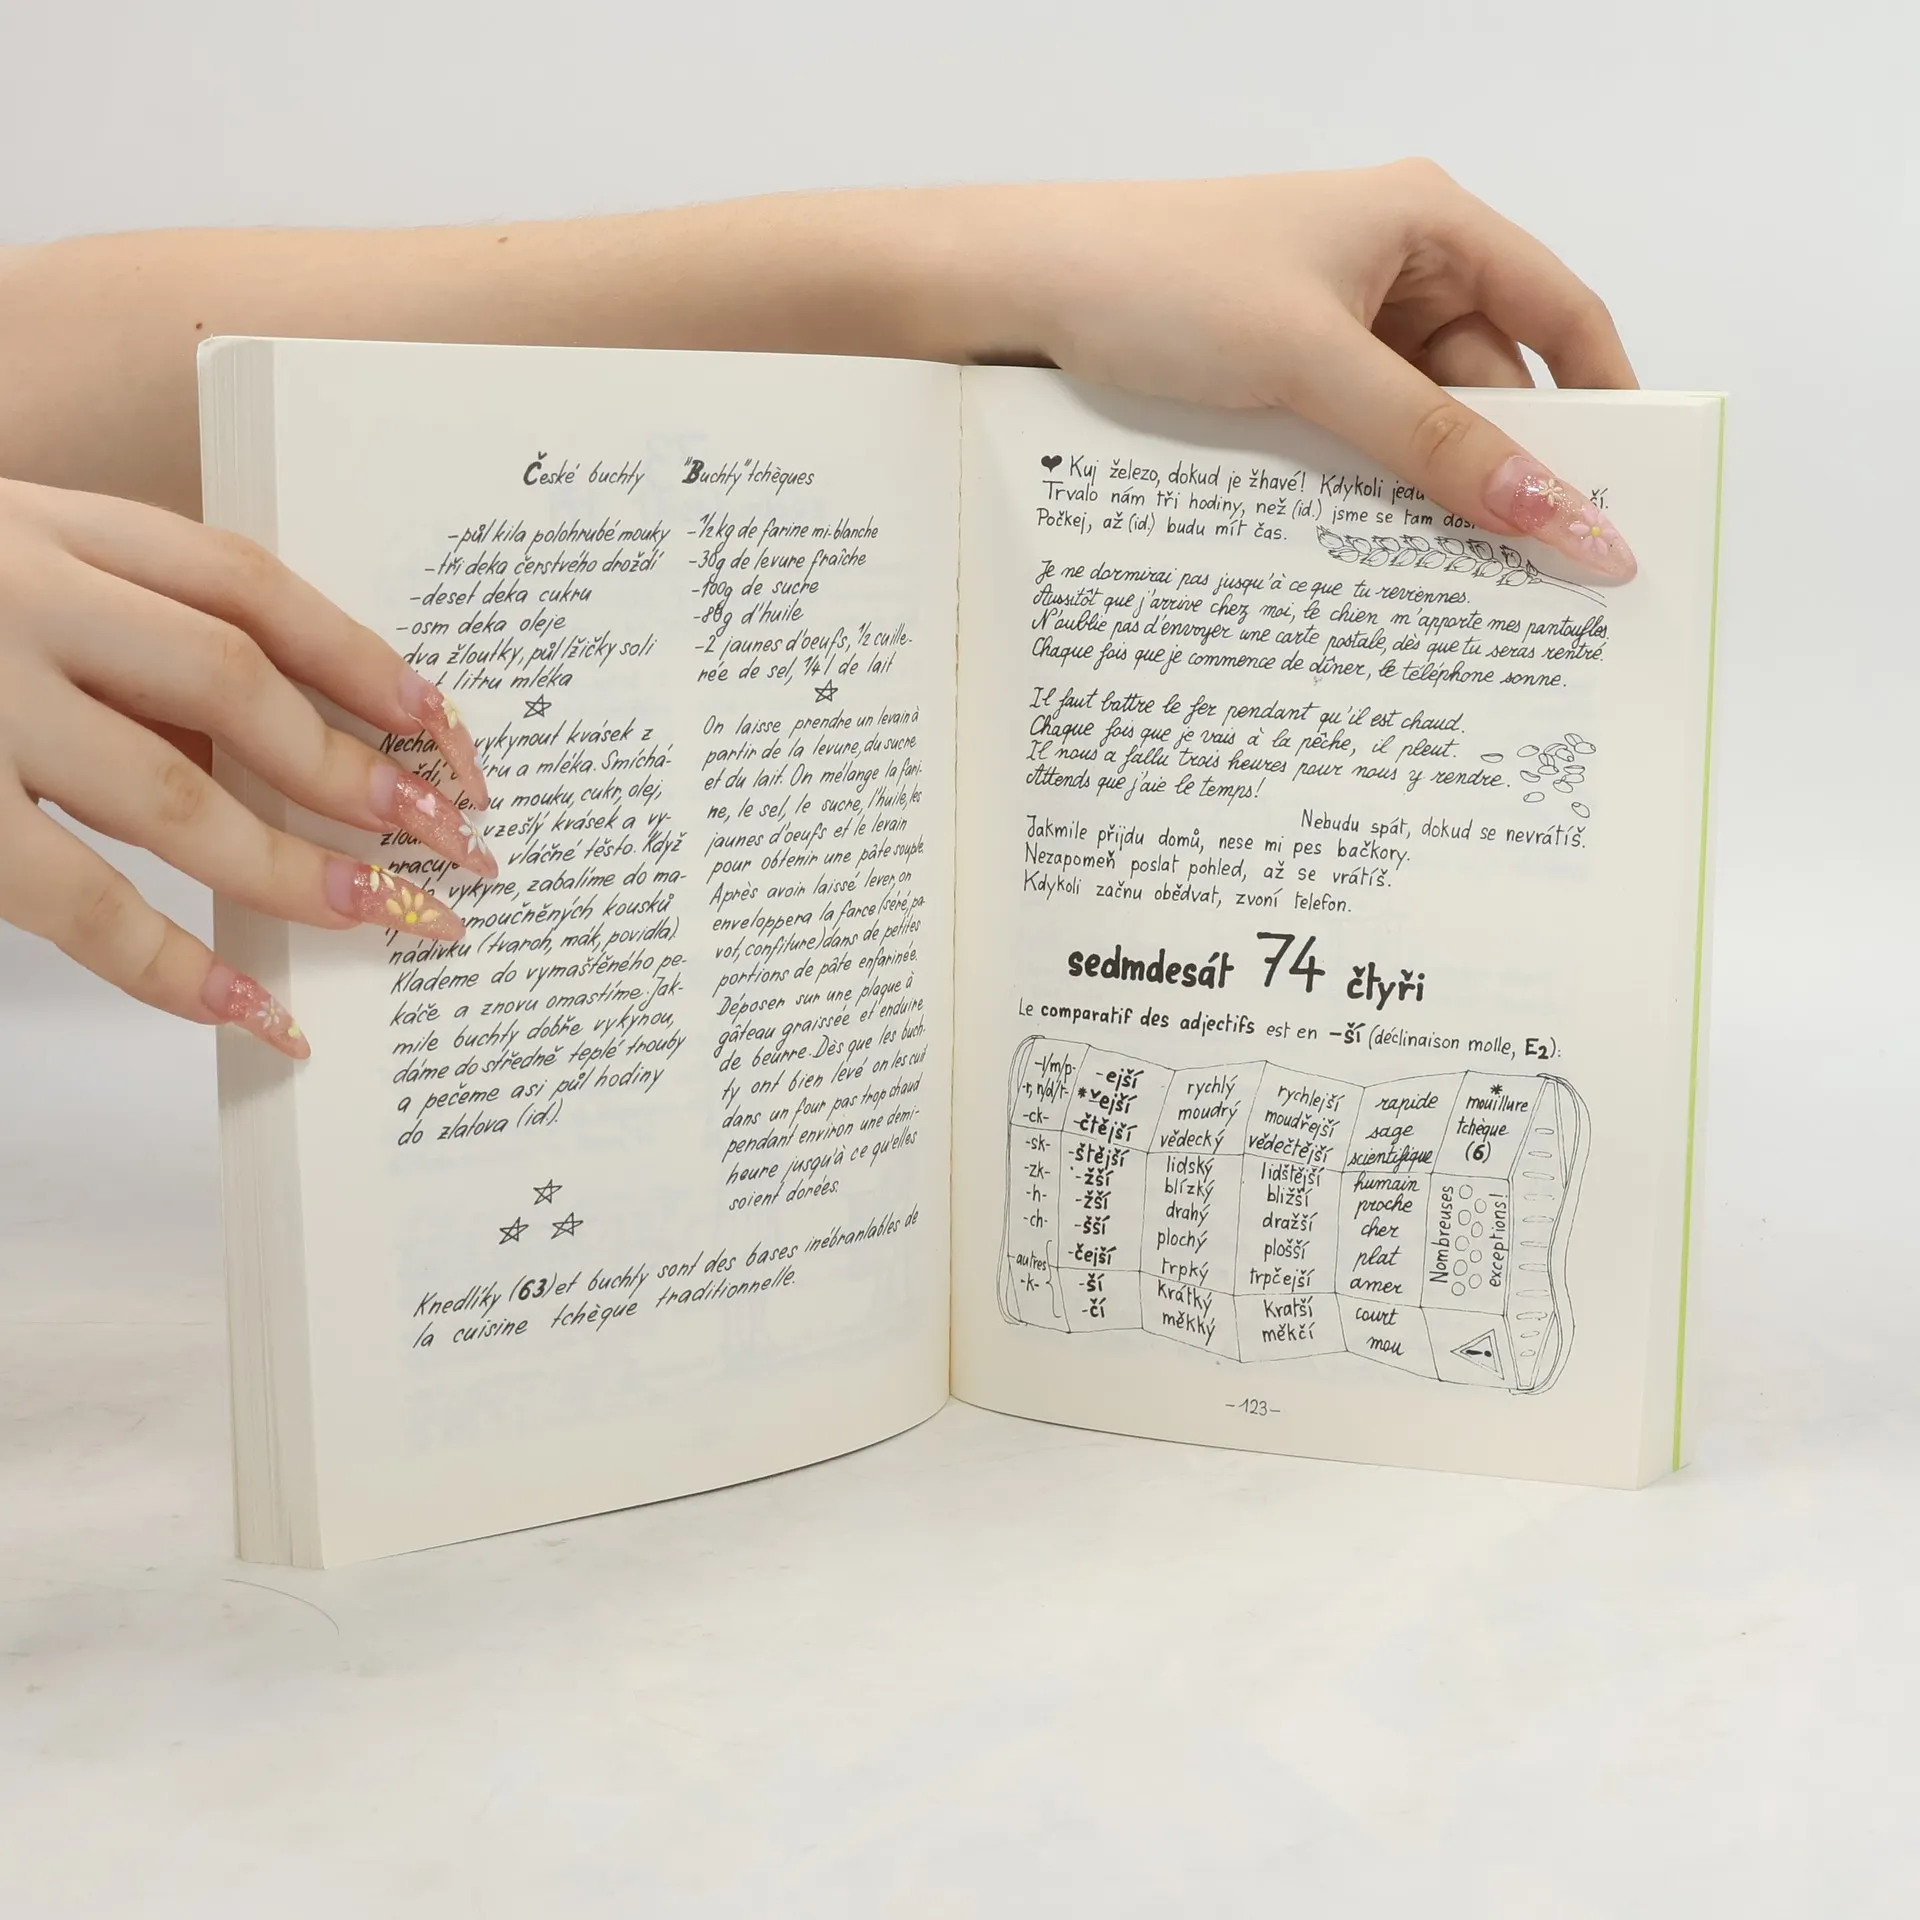 České buchty
-půl kila polohrubé mouky
-tři deka čerstvého droždí
-deset deka cukru
-osm deka oleje
-dva žloutky, půl lžičky soli
litru mléka
vykynout kvásek z
a mléka. Smíchá-
mouku, cukr, olej,
vzešlý kvásek a vy-
vláčné těsto. Když
vykyne, zabalíme do ma-
kousků
nádivku (tvaroh, mák, povidla).
Klademe do vymaštěného pe-
káče a znovu omastíme. Jak-
mile buchty dobře vykynou,
dáme do středně teplé trouby
a pečeme asi půl hodiny
do zlatova (id.).
"Buchty" tchèques
-1/2 kg de farine mi-blanche
-30g de levure fraîche
-100g de sucre
-80g d'huile
-2 jaunes d'oeufs, 1/2 cuille-
rée de sel, 1/4 l de lait
On laisse prendre un levain à
partir de la levure, du sucre
et du lait. On mélange la fari-
ne, le sel, le sucre, l'huile, les
jaunes d'oeufs et le levain
pour obtenir une pâte souple.
Après avoir laissé lever, on
enveloppera la farce (séré, pa-
vot, confiture) dans de petites
portions de pâte enfarinée.
Déposer sur une plaque à
gâteau graissée et enduire
de beurre. Dès que les buch-
ty ont bien levé on les cuit
dans un four pas trop chaud
pendant environ une demi-
heure jusqu'à ce qu'elles
soient dorées.
Knedlíky (63) et buchty sont des bases inébranlables de
la cuisine tchèque traditionnelle.
❤ Kuj železo, dokud je žhavé! Kdykoli jedu
Trvalo nám tři hodiny, než (id.) jsme se tam
Počkej, až (id.) budu mít čas.
Je ne dormirai pas jusqu'à ce que tu reviennes.
Aussitôt que j'arrive chez moi, le chien m'apporte mes pantoufles.
N'oublie pas d'envoyer une carte postale, dès que tu seras rentré.
Chaque fois que je commence de dîner, le téléphone sonne.
Il faut battre le fer pendant qu'il est chaud.
Chaque fois que je vais à la pêche, il pleut.
Il nous a fallu trois heures pour nous y rendre.
Attends que j'aie le temps!
Nebudu spát, dokud se nevrátíš.
Jakmile přijdu domů, nese mi pes bačkory.
Nezapomeň poslat pohled, až se vrátíš.
Kdykoli začnu obědvat, zvoní telefon.
sedmdesát 74 čtyři
Le comparatif des adjectifs est en -ší (déclinaison molle, E2):
-l/m/p- -ejší rychlý rychlejší rapide * mouillure
-r, n/d/t- *ˇejší moudrý moudřejší sage tchèque
-ck- -čtější vědecký vědečtější scientifique (6)
-sk- -štější lidský lidštější humain
-zk- -žší blízký bližší proche
-h- -žší drahý dražší cher
-ch- -šší plochý plošší plat
autres -čejší trpký trpčejší amer
-k- -ší krátký kratší court
-čí měkký měkčí mou
Nombreuses
exceptions!
!
-123-